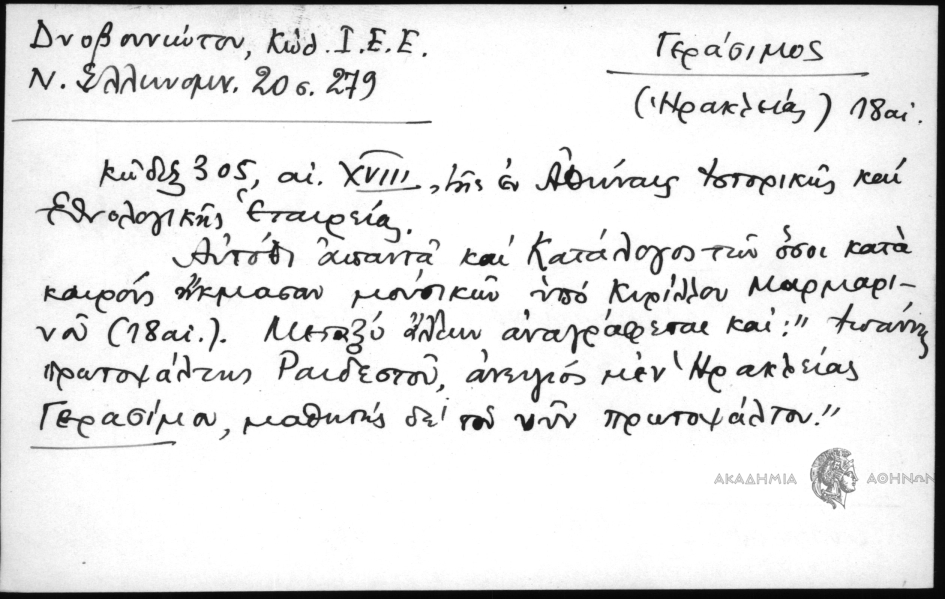 Δυοβουνιώτου, Κώδ. Ι.Ε.Ε.
Ν. Ἑλληνομν. 20 σ. 279
Γεράσιμος
(Ἡρακλείας) 18 αἰ.
Κώδιξ 305, αἰ. XVIII, τῆς ἐν Ἀθήναις Ἱστορικῆς καὶ
Ἐθνολογικῆς Ἑταιρείας.
Αὐτόθι ἀπαντᾶ καὶ Κατάλογος τῶν ὅσοι κατὰ
καιροὺς ἤκμασαν μουσικῶν ὑπὸ Κυρίλλου Μαρμαρι-
νοῦ (18 αἰ.). Μεταξὺ ἄλλων ἀναγράφεται καί: "Ἰωάννης
πρωτοψάλτης Ραιδεστοῦ, ἀνεψιός μὲν Ἡρακλείας
Γερασίμου, μαθητής δὲ τοῦ νῦν πρωτοψάλτου."
ΑΚΑΔΗΜΙΑ ΑΘΗΝΩΝ